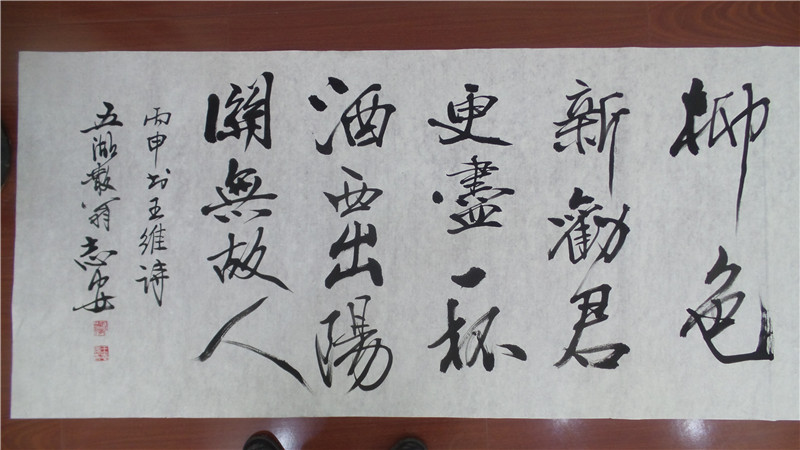 柳色
新勸君
更盡一杯
酒西出陽
關無故人
丙申書王維詩
五湖散翁志安